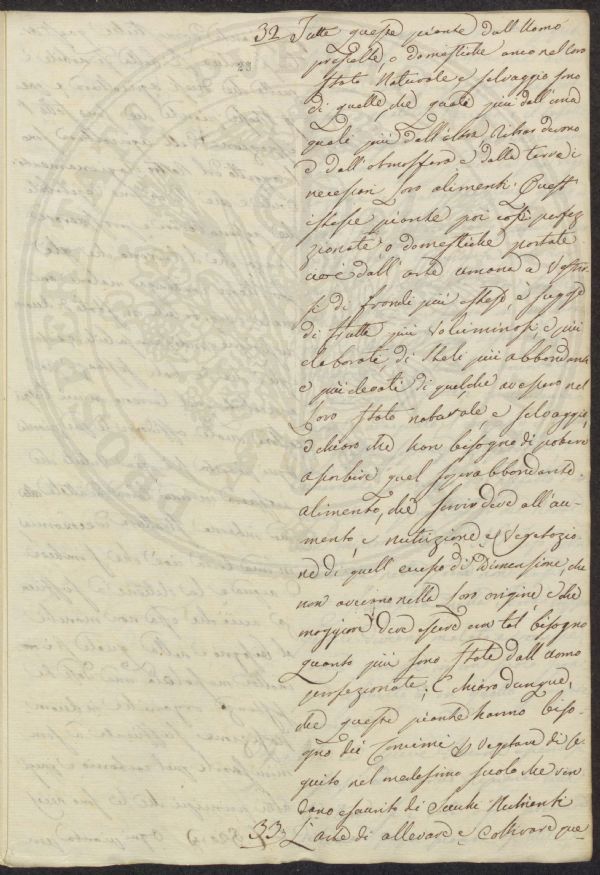 32 Tutte queste piante dall'Uomo
28
prescelte, o domestiche anco nel loro
stato Naturale e selvaggio sono
di quelle, che quale più dall'una
quale più dall'altra
e dall'atmosfera e dalla terra i
loro alimenti. Quest'
istesse piante poi così perfez-
zionate o domestiche portate
cioè dall'arte umana a vestir-
si di frondi più estese, e
di frutte più voluminosi e più
elaborate, di steli più abbondanti
e più elevati di quelche avessero nel
loro stato naturale, e selvaggio,
è chiaro che han bisogno di potere
assorbire quel sopra abbondante
alimento, che servir deve all'au-
mento, e nutrizione e Vegetazio-
ne di quell'eccesso di Dimensione, che
non avevano nella loro origine, e che
maggiore deve essere un tal bisogno
quanto più sono state dall'uomo
perfezionate; È chiaro dunque,
che queste piante hanno biso-
gno dei Concimi per Vegetare di se-
guito nel medesimo suolo che ren-
dano esausto di Nutrienti
33 L'arte di allevare e coltivare que-